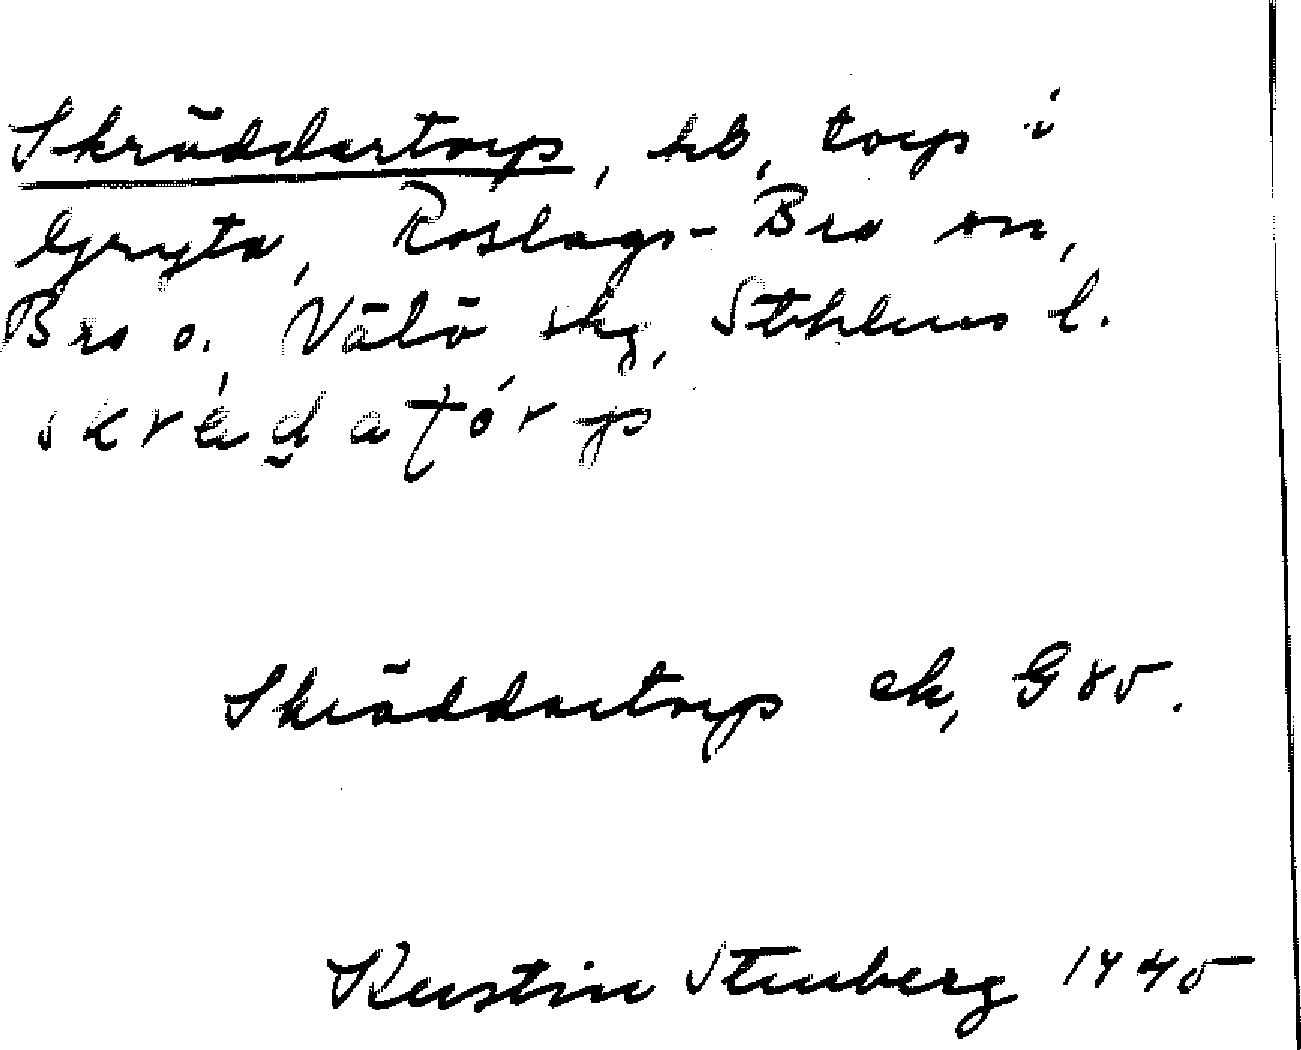 Skräddartorp, hb, torp i
Gryta, Roslags-Bro sn,
Bro o. Vätö skg, Sthlms l.
skrädatórp
Skräddartorp ek, G85.
Kerstin Stenberg 1945